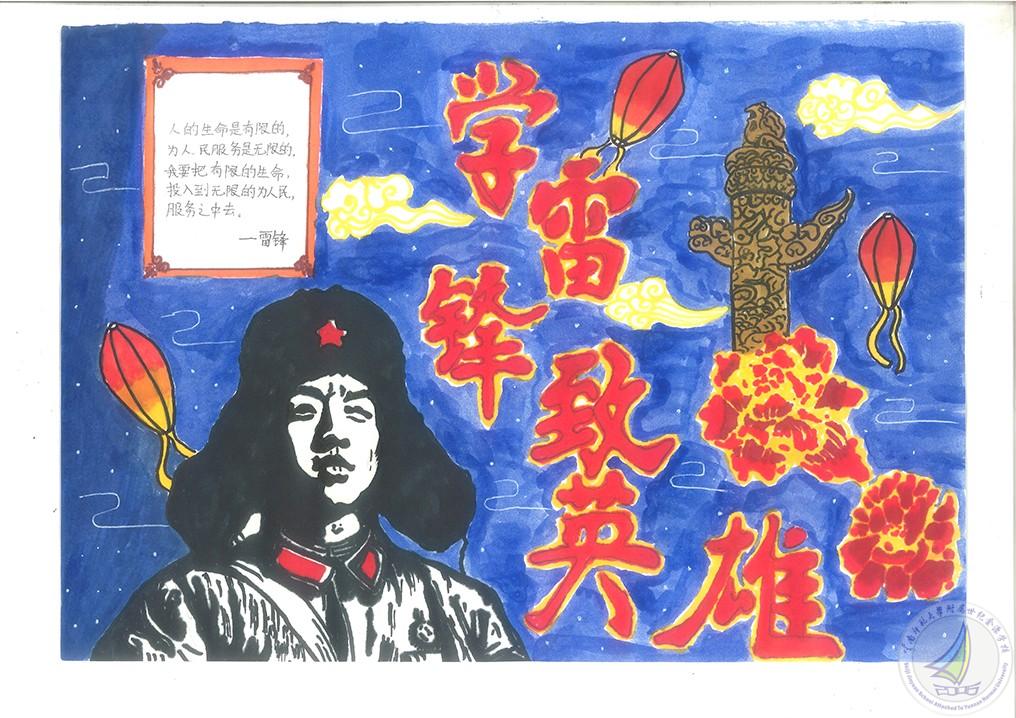 人的生命是有限的,
为人民服务是无限的.
我要把有限的生命,
投入到无限的为人民,
服务之中去。
—雷锋
学雷锋致英雄
Shiji Jinyuan School Attached To Yunnan Normal University